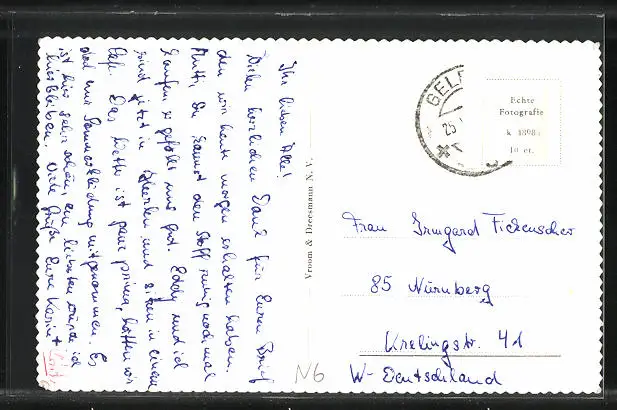 Ihr lieben Alle!
Vielen herzlichen Dank für Euren Brief
den wir heute morgen erhalten haben.
Mutti, Du kannst den Stoff ruhig nochmal
kaufen er gefällt uns gut. Eddy und ich
sind jetzt in Heerlen und sitzen in einem
Café. Das Wetter ist ganz prima, hätten wir
doch nur Sommerkleidung mitgenommen. Es
ist hier sehr schön, am liebsten würde ich
hierbleiben. Viele Grüße Eure Karin +
Vroom & Dreesmann N.V.
GELE
25
Echte
Fotografie
k 4898
10 ct.
Frau Irmgard Fickenscher
85 Nürnberg
Krelingstr. 41
W-Deutschland
N6